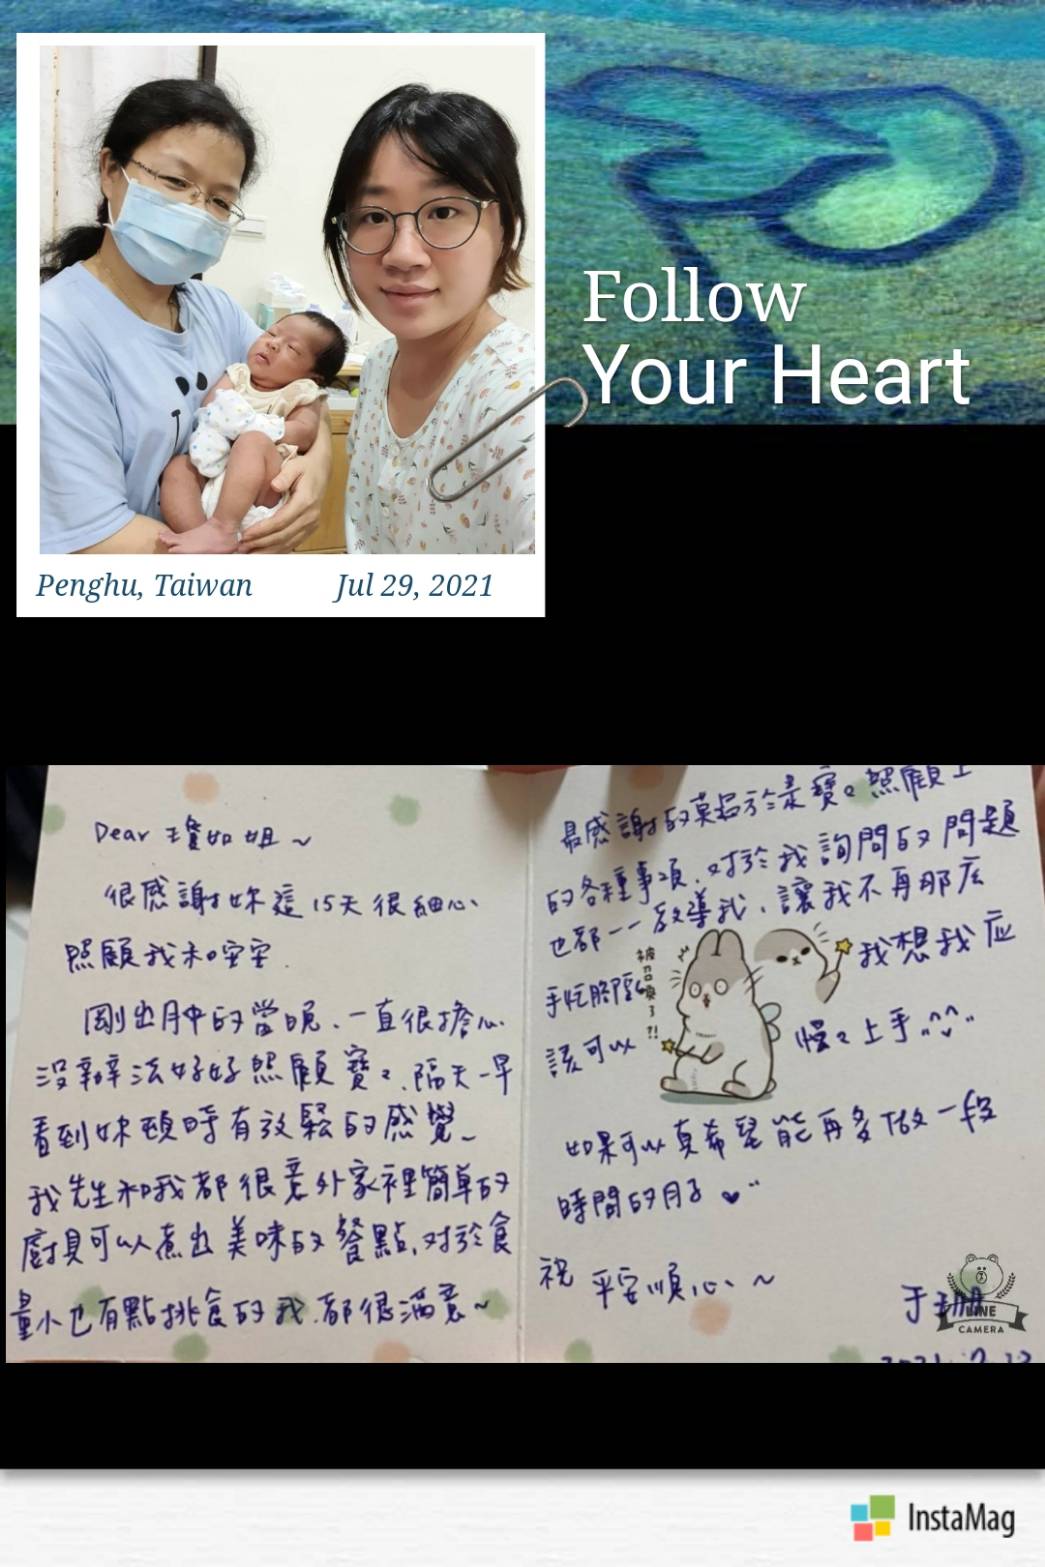 Follow
Your Heart
Penghu, Taiwan
Jul 29, 2021
Dear 瓊如姐~
很感謝妳這15天很細心
照顧我和安安.
剛出月中的當晚、一直很擔心
沒辦法好好照顧寶寶、隔天一早
看到妳頓時有放鬆的感覺~
我先生和我都很意外家裡簡單的
廚具可以煮出美味的餐點,對於食
量小也有點挑食的我.都很滿意~
最感謝的莫名於是寶寶照顧上
的各種事項,對於我詢問的問題
也都一一教導我、讓我不再那麼
手忙腳亂
我想我應
該可以
慢慢上手
被召喚了?!
如果可以真希望能再多做一段
時間的月子
祝 平安順心~
于
LINE
CAMERA
InstaMag